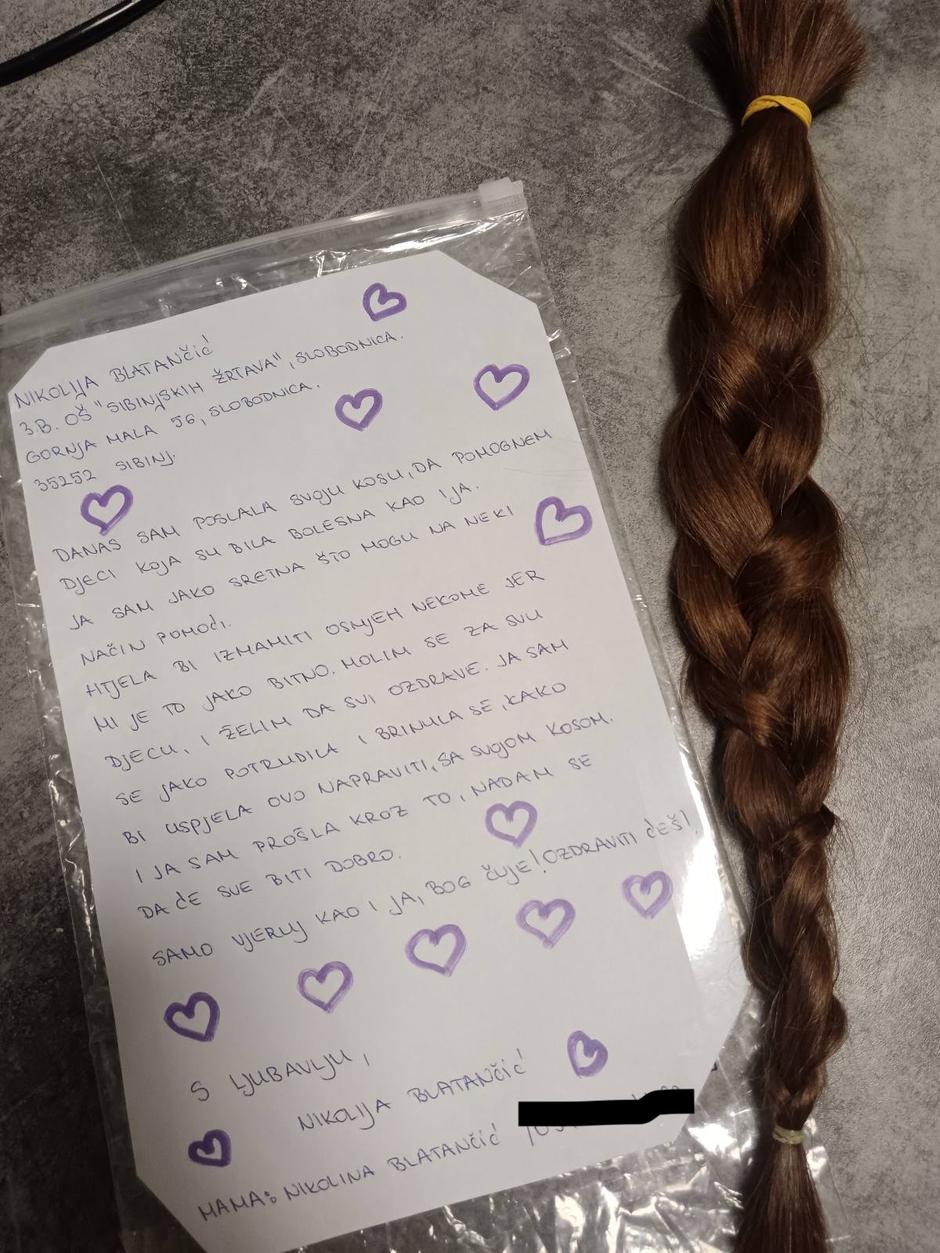 NIKOLIJA BLATANČIĆ
3.B. OŠ "SIBINJSKIH ŽRTAVA", SLOBODNICA.
GORNJA MALA 56, SLOBODNICA.
35252 SIBINJ.
DANAS SAM POSLALA SVOJU KOSU, DA POMOGNEM
DJECI KOJA SU BILA BOLESNA KAO I JA.
JA SAM JAKO SRETNA ŠTO MOGU NA NEKI
NAČIN POMOĆI.
HTJELA BI IZMAMITI OSMJEH NEKOME JER
MI JE TO JAKO BITNO. MOLIM SE ZA SVU
DJECU, I ŽELIM DA SVI OZDRAVE. JA SAM
SE JAKO POTRUDILA I BRINULA SE, KAKO
BI USPJELA OVO NAPRAVITI, SA SVOJOM KOSOM.
I JA SAM PROŠLA KROZ TO, NADAM SE
DA ĆE SVE BITI DOBRO.
SAMO VJERUJ KAO I JA, BOG ČUJE! OZDRAVITI ĆEŠ!
S LJUBAVLJU,
NIKOLIJA BLATANČIĆ
MAMA: NIKOLINA BLATANČIĆ